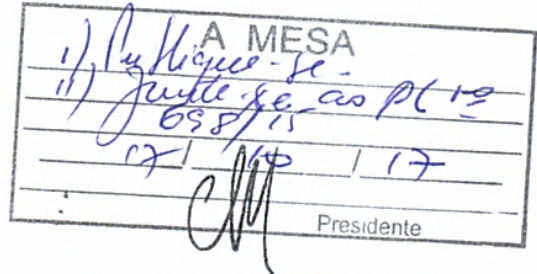 A MESA
i) Publique-se.
ii) Junte-se ao PL nº
698/15
17 / 10 / 17
Presidente